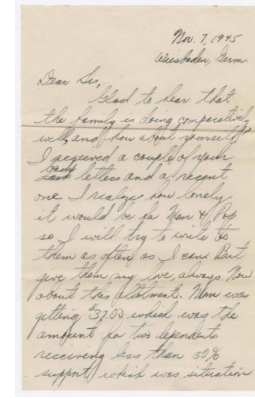 Nov. 7, 1945
Wiesbaden, Germ
Dear Sis,
Glad to hear that
the family is doing comparatively
well, and how about yourself?
I received a couple of your
letters and a recent
one. I realize how lonely
it would be for Mom & Pop
so I will try to write to
them as often as I can. But
give them my love, always. Now
about this allotment. Mom was
getting $37.00 which was the
amount for two dependents
receiving less than 50%
support which was situation